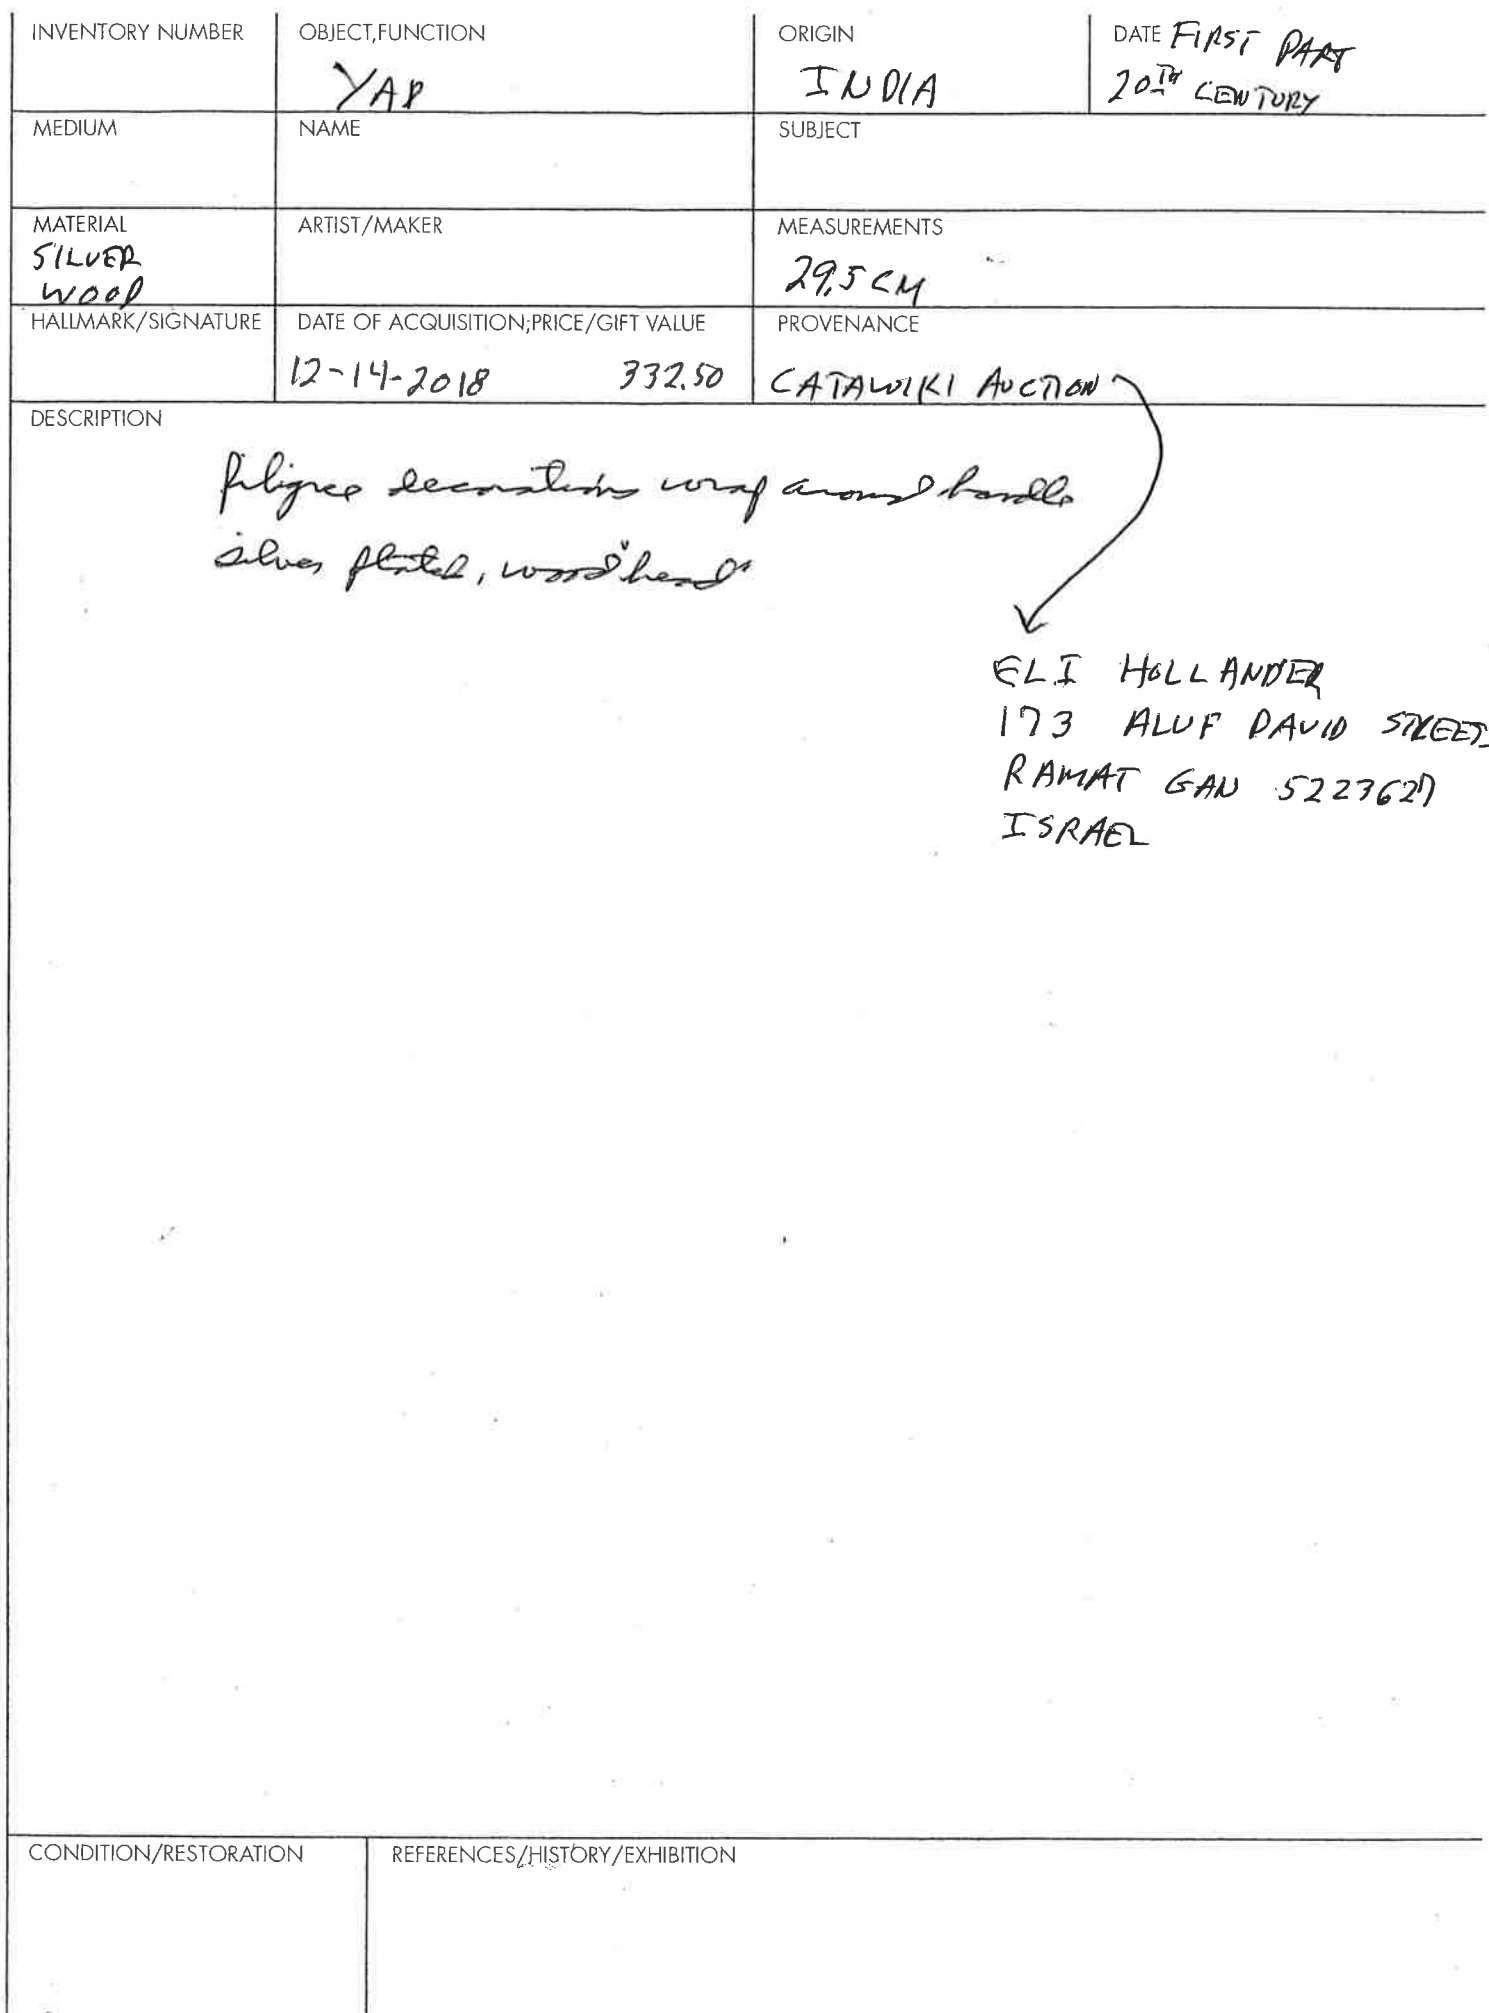 INVENTORY NUMBER
OBJECT,FUNCTION
YAP
ORIGIN
INDIA
DATE FIRST PART
20TH CENTURY
MEDIUM
NAME
SUBJECT
MATERIAL
SILVER
WOOD
ARTIST/MAKER
MEASUREMENTS
29.5 CM
HALLMARK/SIGNATURE
DATE OF ACQUISITION;PRICE/GIFT VALUE
12-14-2018 332.50
PROVENANCE
CATAWIKI AUCTION
DESCRIPTION
filigree decorations wrap around handle
silver plated, wood "head"
ELI HOLLANDER
173 ALUF DAVID STREET
RAMAT GAN 5223627
ISRAEL
CONDITION/RESTORATION
REFERENCES/HISTORY/EXHIBITION